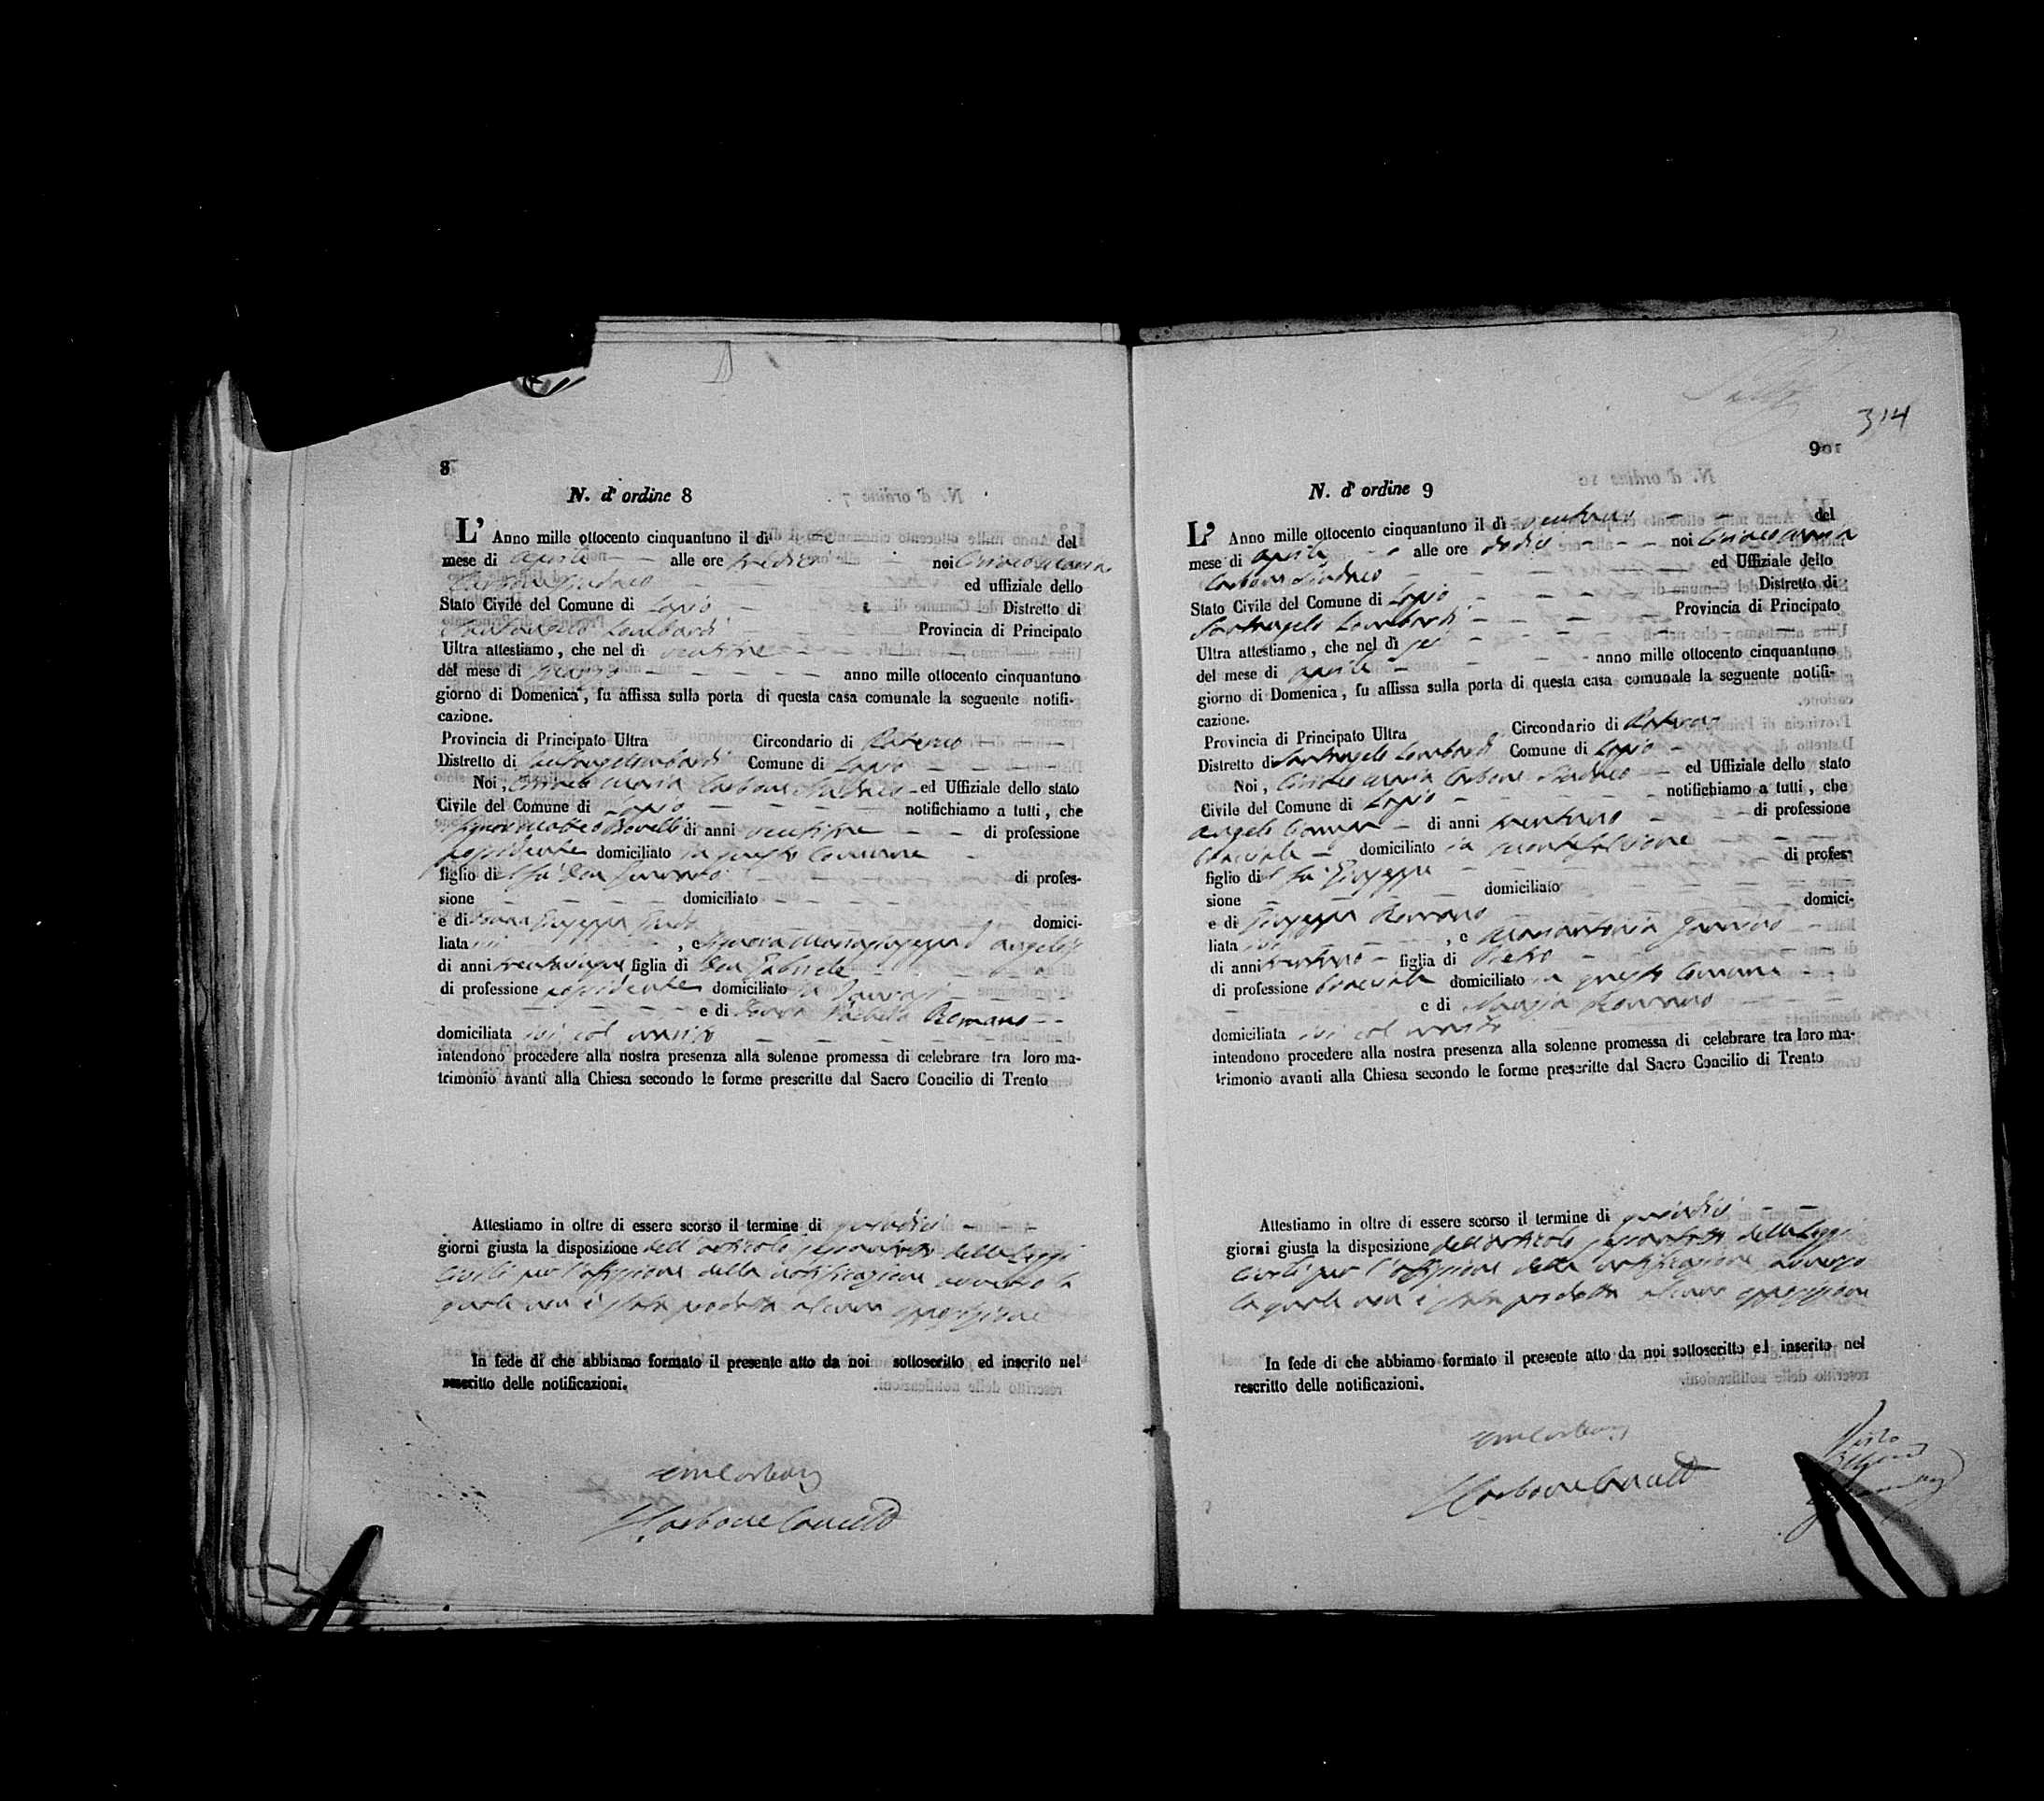 8
N. d' ordine 8
L' Anno mille ottocento cinquantuno il dì del
mese di aprile alle ore tredici noi Ciriaco Maria
Carbone Sindaco ed uffiziale dello
Stato Civile del Comune di Lapio Distretto di
Santangelo Lombardi Provincia di Principato
Ultra attestiamo, che nel dì ventitre
del mese di marzo anno mille ottocento cinquantuno
giorno di Domenica, fu affissa sulla porta di questa casa comunale la seguente notifi-
cazione.
Provincia di Principato Ultra Circondario di Paterno
Distretto di Santangelo Lombardi Comune di Lapio
Noi, Ciriaco Maria Carbone Sindaco ed Uffiziale dello stato
Civile del Comune di Lapio notifichiamo a tutti, che
di anni ventitre di professione
possidente domiciliato in questo Comune
figlio di fu Don di profes-
sione domiciliato
e di Donna Giuseppa domici-
liata ivi, e Signora Mariagiuseppa
di anni trentacinque figlia di Don Gabriele
di professione possidente domiciliato in Taurasi
e di Donna Romano
domiciliata ivi col marito
intendono procedere alla nostra presenza alla solenne promessa di celebrare tra loro ma-
trimonio avanti alla Chiesa secondo le forme prescritte dal Sacro Concilio di Trento
Attestiamo in oltre di essere scorso il termine di quindici
giorni giusta la disposizione dell'articolo sessantotto delle Leggi
Civili per l'affissione della notificazione avverso la
quale non è stata prodotta alcuna opposizione
In fede di che abbiamo formato il presente atto da noi sottoscritto ed inserito nel
rescritto delle notificazioni.
Carbone
314
9
N. d' ordine 9
L' Anno mille ottocento cinquantuno il dì ventuno del
mese di aprile alle ore dodici noi Ciriaco Maria
Carbone Sindaco ed Uffiziale dello
Stato Civile del Comune di Lapio Distretto di
Santangelo Lombardi Provincia di Principato
Ultra attestiamo, che nel dì sei
del mese di aprile anno mille ottocento cinquantuno
giorno di Domenica, fu affissa sulla porta di questa casa comunale la seguente notifi-
cazione.
Provincia di Principato Ultra Circondario di Paterno
Distretto di Santangelo Lombardi Comune di Lapio
Noi, Ciriaco Maria Carbone Sindaco ed Uffiziale dello stato
Civile del Comune di Lapio notifichiamo a tutti, che
Angelo di anni trentuno di professione
bracciale domiciliato in Montefalcione
figlio di fu Giuseppe di profes-
sione domiciliato
e di Giuseppa Romano domici-
liata ivi, e Mariantonia
di anni trentuno figlia di Pietro
di professione bracciale domiciliato in questo Comune
e di Romano
domiciliata ivi col marito
intendono procedere alla nostra presenza alla solenne promessa di celebrare tra loro ma-
trimonio avanti alla Chiesa secondo le forme prescritte dal Sacro Concilio di Trento
Attestiamo in oltre di essere scorso il termine di quindici
giorni giusta la disposizione dell'articolo sessantotto delle Leggi
Civili per l'affissione della notificazione avverso
la quale non è stata prodotta alcuna opposizione
In fede di che abbiamo formato il presente atto da noi sottoscritto ed inserito nel
rescritto delle notificazioni.
Carbone